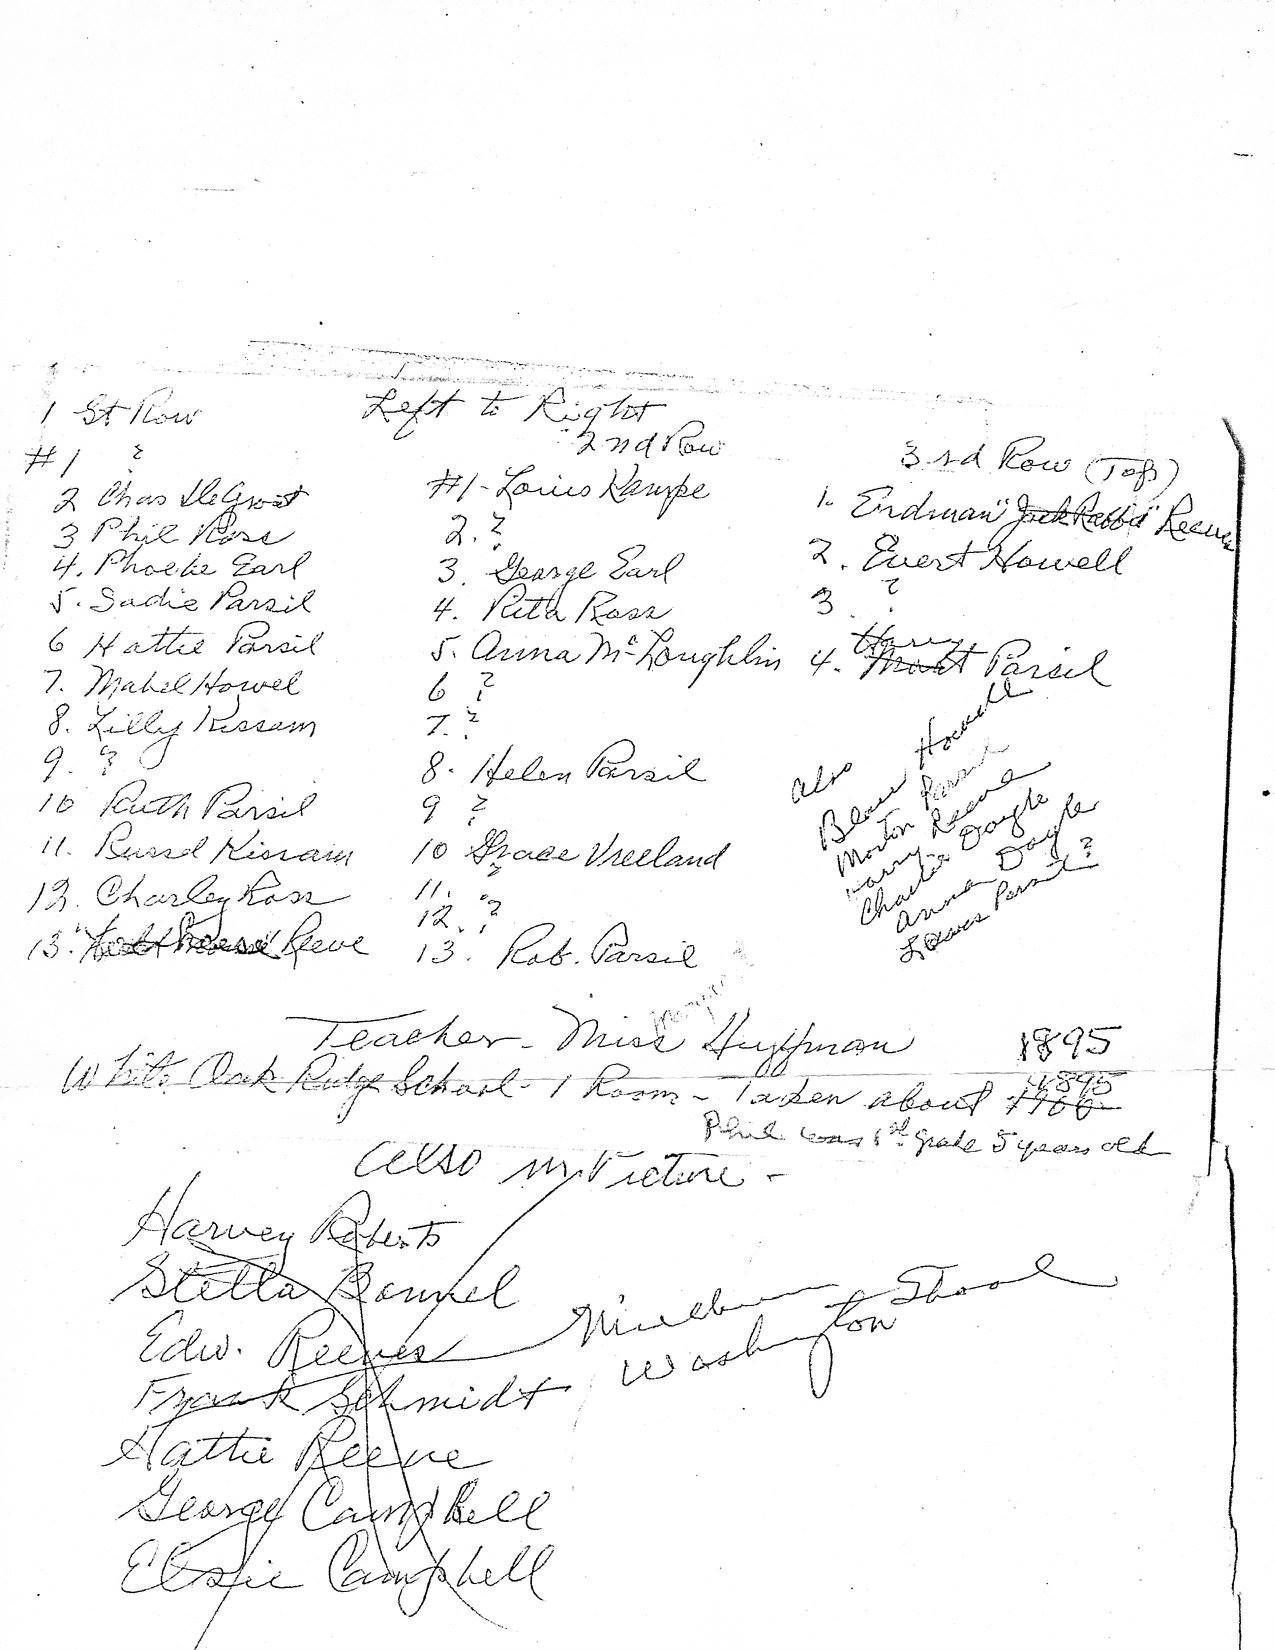 Left to Right
1 St Row
#1 ?
2 Chas DeGroot
3 Phil Ross
4. Phoebe Earl
5. Sadie Parsil
6 Hattie Parsil
7. Mabel Howel
8. Lilly Kissam
9. ?
10 Ruth Parsil
11. Russel Kissam
12. Charley Ross
13. Reeve
2nd Row
#1 - Louis Kampe
2. ?
3. George Earl
4. Rita Ross
5. Anna McLoughlin
6 ?
7. ?
8. Helen Parsil
9 ?
10 Grace Vreeland
11. ?
12. ?
13. Rob. Parsil
3rd Row (Top)
1. Erdman "Jack Rabbit" Reeve
2. Evert Howell
3 ?
Harry
4. Mort Parsil
Also
Howell
Morton Parsil
Harry Reeve
Charlie Doyle
Anna Doyle
Parsil ?
Teacher - Miss Huffman 1895
White Oak Ridge School - 1 Room - Taken about 1900
1895
Phil was 1st grade 5 years old
Also in Picture -
Harvey Roberts
Stella Bonnel
Edw. Reeves
Frank Schmidt
Hattie Reeve
George Campbell
Elsie Campbell
Millburn School
Washington